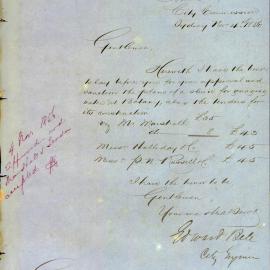 City Commissioner
Sydney Nov 4. 1856
Gentlemen,
Herewith I have the honor
to lay before you for your approval and
sanction the plans of a sluice for gauging
water at Botany, also the tenders for
its construction
by Mr. Marshall £35
do £43
Messrs Halliday & Co £45
Messrs P. N. Russell & Co £45
I have the honor to be
Gentlemen
Your obdt Servt
Edward Bell
City Engineer
4 Nov. 1856
accepted